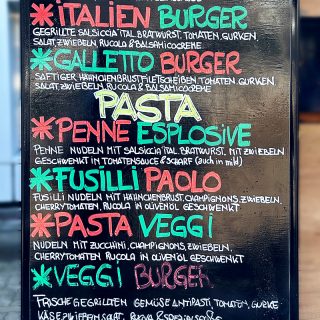 *ITALIEN BURGER
GEGRILLTE SALSICCIA ITAL. BRATWURST, TOMATEN, GURKEN,
SALAT, ZWIEBELN, RUCOLA & BALSAMICOCREME
*GALLETTO BURGER
SAFTIGER HÄHNCHENBRUSTFILETSCHEIBEN, TOMATEN, GURKEN
SALAT, ZWIEBELN, RUCOLA & BALSAMICOCREME
PASTA
*PENNE ESPLOSIVE
PENNE NUDELN MIT SALSICCIA ITAL. BRATWURST, MIT ZWIEBELN
GESCHWENKT IN TOMATENSAUCE & SCHARF (auch in mild)
*FUSILLI PAOLO
FUSILLI NUDELN MIT HÄHNCHENBRUST, CHAMPIGNONS, ZWIEBELN,
CHERRYTOMATEN, RUCOLA IN OLIVENÖL GESCHWENKT
*PASTA VEGGI
NUDELN MIT ZUCCHINI, CHAMPIGNONS, ZWIEBELN,
CHERRYTOMATEN RUCOLA IN OLIVENÖL GESCHWENKT
*VEGGI BURGER
FRISCHE GEGRILLTEN GEMÜSE ANTIPASTI, TOMATEN, GURKE
KÄSE, ZWIEBELN, SALAT,